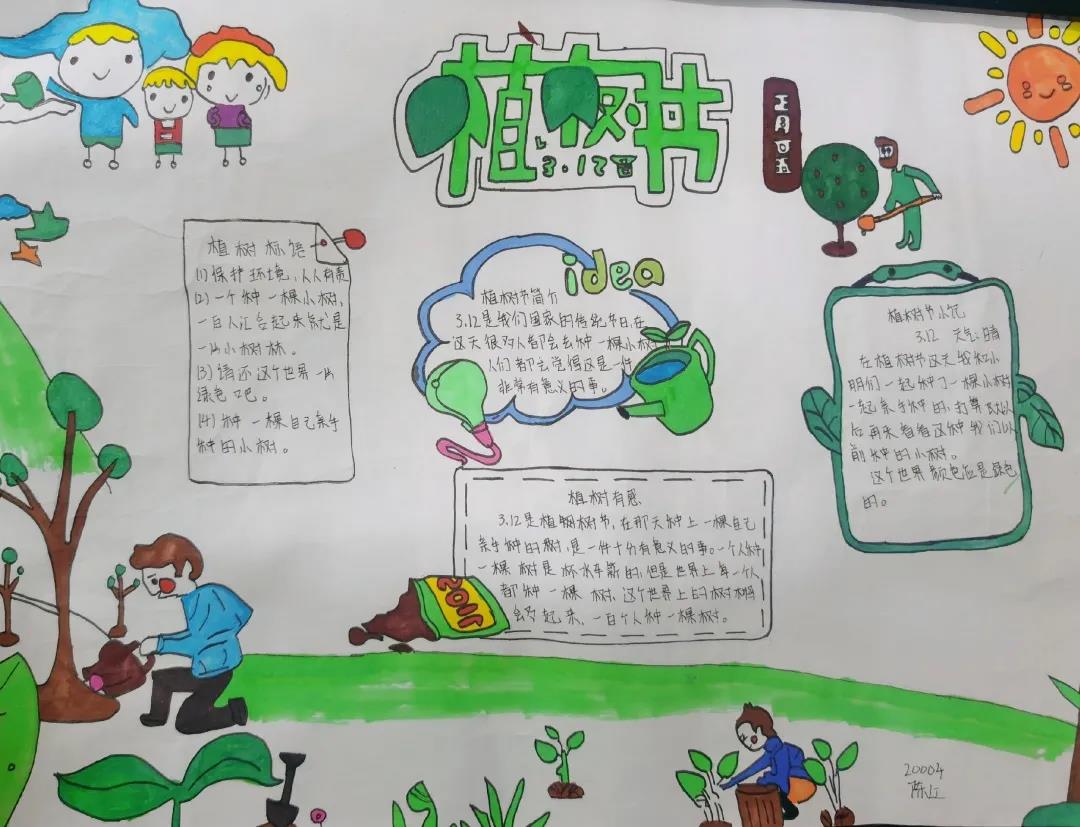 植树节
3.12
植树标语
(1)保护环境,人人有责
(2)一个种一棵小树,
一百人汇合起来就是
一片小树林。
(3)请还这个世界一片
绿色吧。
(4)种一棵自己亲手
种的小树。
idea
植树节简介
3.12是我们国家的传统节日,在
这天很多人都会去种一棵小树
人们都会觉得这是一件
非常有意义的事。
植树节小记
3.12 天气:晴
在植树节这天我和小
朋们一起种了一棵小树
一起亲手种的,打算
后再来看看这种我们以
前种的小树。
这个世界颜色应是绿色
的。
植树有感
3.12是植树节,在那天种上一棵自己
亲手种的树,是一件十分有意义的事。一个人种
一棵树是杯水车薪的,但是世界上每一个人
都种一棵树,这个世界上的树木将
会多起来,一百个人种一棵树。
SOIL
2000年
陈